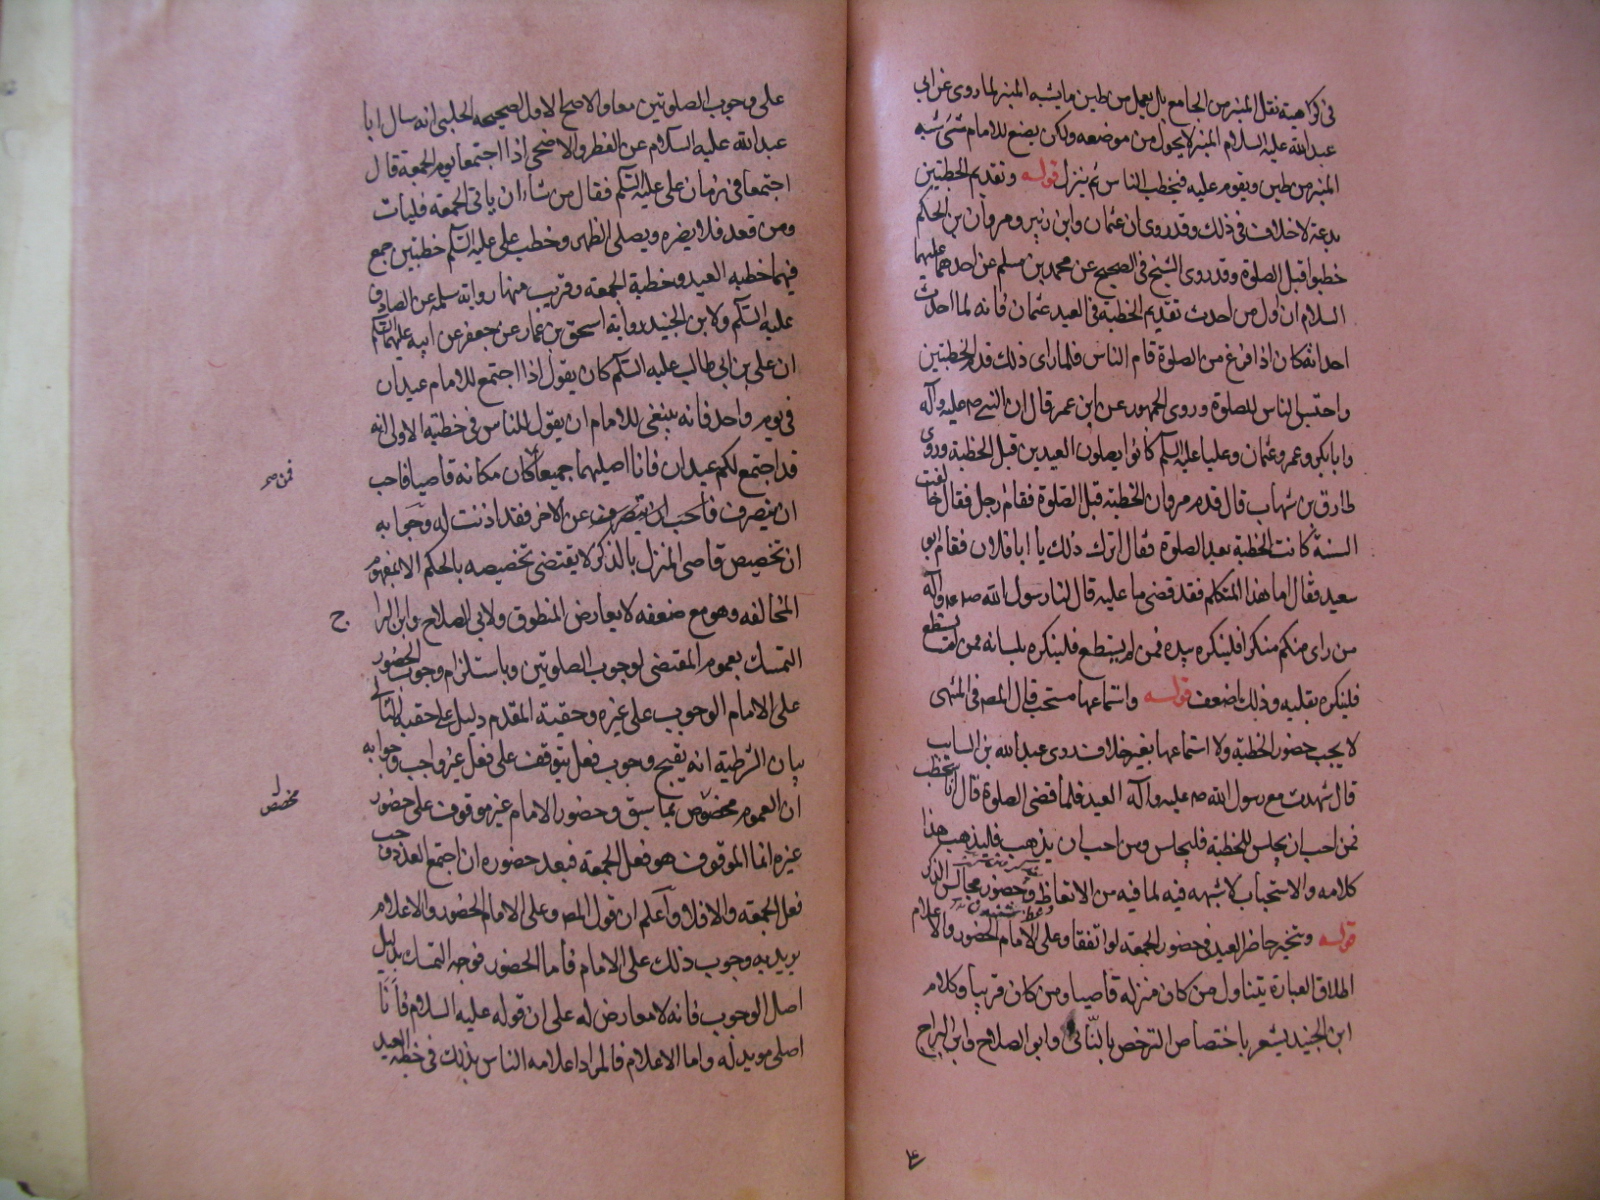 فى كراهية نقل المنبر من الجامع بل يعمل من طين ما يشبه المنبر لما روى عن ابى
عبد الله عليه السلام المنبر لا يحول من موضعه ولكن يضع للامام شىء شبه
المنبر من طين ويقوم عليه فيخطب الناس ثم ينزل قوله وتقديم الخطبتين
بدعة لا خلاف فى ذلك وقد روى ان عثمان وابن زبير ومروان بن الحكم
خطبوا قبل الصلوة وقد روى الشيخ فى الصحيح عن محمد بن مسلم عن احدهما عليهما
السلام ان اول من احدث تقديم الخطبة فى العيد عثمان فانه لما احدث
احداثه كان اذا فرغ من الصلوة قام الناس فلما راى ذلك قدم الخطبتين
واحتبس الناس للصلوة وروى الجمهور عن ابن عمر قال ان النبى ص عليه وآله
وابا بكر وعمر وعثمان وعليا عليه السلم كانوا يصلون العيدين قبل الخطبة وروى
طارق بن شهاب قال قدم مروان الخطبة قبل الصلوة فقام رجل فقال خالفت
السنة كانت الخطبة بعد الصلوة فقال اترك ذلك يا ابا فلان فقام ابو
سعيد فقال اما هذا المتكلم فقد قضى ما عليه قال لنا رسول الله ص وآله
من راى منكم منكرا فلينكره بيده فمن لم يستطع فلينكره بلسانه فمن لم يستطع
فلينكره بقلبه وذلك اضعف قوله واستماعها مستحب قال المص فى المنتهى
لا يجب حضور الخطبة ولا استماعها بغير خلاف روى عبد الله بن السايب
قال شهدت مع رسول الله ص عليه وآله العيد فلما قضى الصلوة قال انا نخطب
فمن احب ان يجلس للخطبة فليجلس ومن احب ان يذهب فليذهب هذا
كلامه والاستحباب لا شبهه فيه لما فيه من الاتعاظ وحضور مجالس الذكر
قوله ويتخير حاضر العيد فى حضور الجمعه لو اتفقا وعلى الامام الحضور والاعلام
اطلاق العبارة يتناول من كان منزله قاصيا ومن كان قريبا وكلام
ابن الجنيد يشعر باختصاص الترخص بالنائى وابو الصلاح وابن البراج
على وجوب الصلوتين معا والاصح الاول لصحيحه الحلبى انه سال ابا
عبد الله عليه السلام عن الفطر والاضحى اذا اجتمعا يوم الجمعة قال
اجتمعا فى زمان على عليه السلم فقال من شاء ان ياتى الجمعه فليات
ومن قعد فلا يضره ويصلى الظهر وخطب على عليه السلم خطبتين جمع
فيهما خطبه العيد وخطبة الجمعه وقريب منها رواية سلمه عن الصادق
عليه السلم ولابن الجنيد رواية اسحق بن عمار عن جعفر عن ابيه عليهما السلم
ان على بن ابى طالب عليه السلم كان يقول اذا اجتمع للامام عيدان
فى يوم واحد فانه ينبغى للامام ان يقول للناس فى خطبته الاولى انه
قد اجتمع لكم عيدان فانا اصليهما جميعا كان مكانه قاصيا فاحب
فمن صح
ان ينصرف عن الاخر فقد اذنت له وجوابه
ان تخصيص قاصى المنزل بالذكر لا يقتضى تخصيصه بالحكم الا بمفهوم
المخالفه وهو مع ضعفه لا يعارض المنطوق ولابى الصلاح وابن البرا
ج
التمسك بعموم المقتضى لوجوب الصلوتين وباستلزام وجوب الحضور
على الامام الوجوب على غيره وحقية المقدم دليل على حقية التالى
بيان الشرطية انه يقبح وجوب فعل يتوقف على فعل غير واجب وجوابه
ان العموم مخصوص بما سبق وحضور الامام غير موقوف على حضور
مخصص
غيره انما الموقوف هو فعل الجمعه فبعد حضوره ان اجتمع العدد وجب
فعل الجمعه والا فلا واعلم ان قول المص وعلى الامام الحضور والاعلام
يريد به وجوب ذلك على الامام فاما الحضور فوجه التمسك بدليل
اصل الوجوب فانه لا معارض له على ان قوله عليه السلام فانا
اصلى مويد له واما الاعلام فالمراد اعلامه الناس بذلك فى خطبة العيد